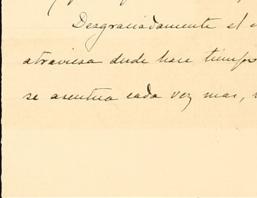 Desgraciadamente el
atraviesa desde hace tiempo
se acentúa cada vez mas,